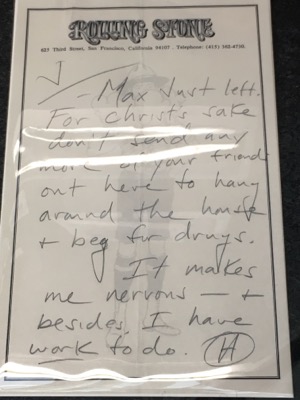 ROLLING STONE
625 Third Street, San Francisco, California 94107 . Telephone: (415) 362-4730.
J
— Max Just left.
For Christ's sake
don't send any
more of your friends
out here to hang
around the house
+ beg for drugs.
It makes
me nervous — +
besides, I have
work to do. H